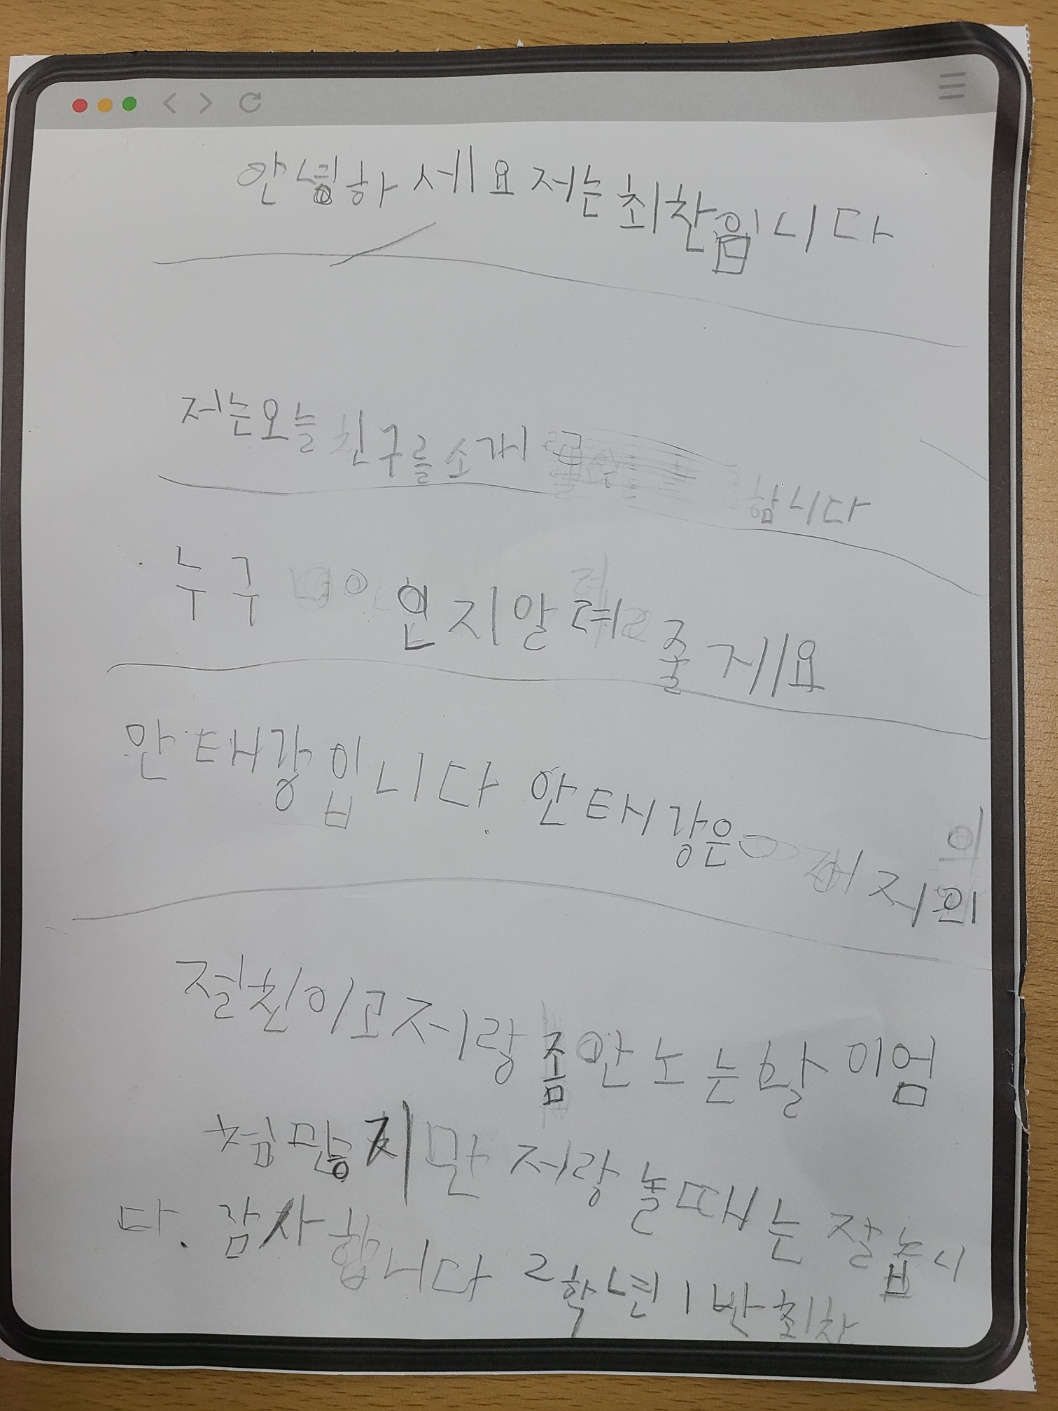 안녕하세요 저는 최찬입니다
저는오늘 친구를 소개 합니다
누구 인지알려 줄게요
안태강입니다. 안태강은 저의
절친이고저랑 좀안노는날이엄
청많지만 저랑 놀때는 잘놉니
다. 감사합니다 2학년 1반 최찬